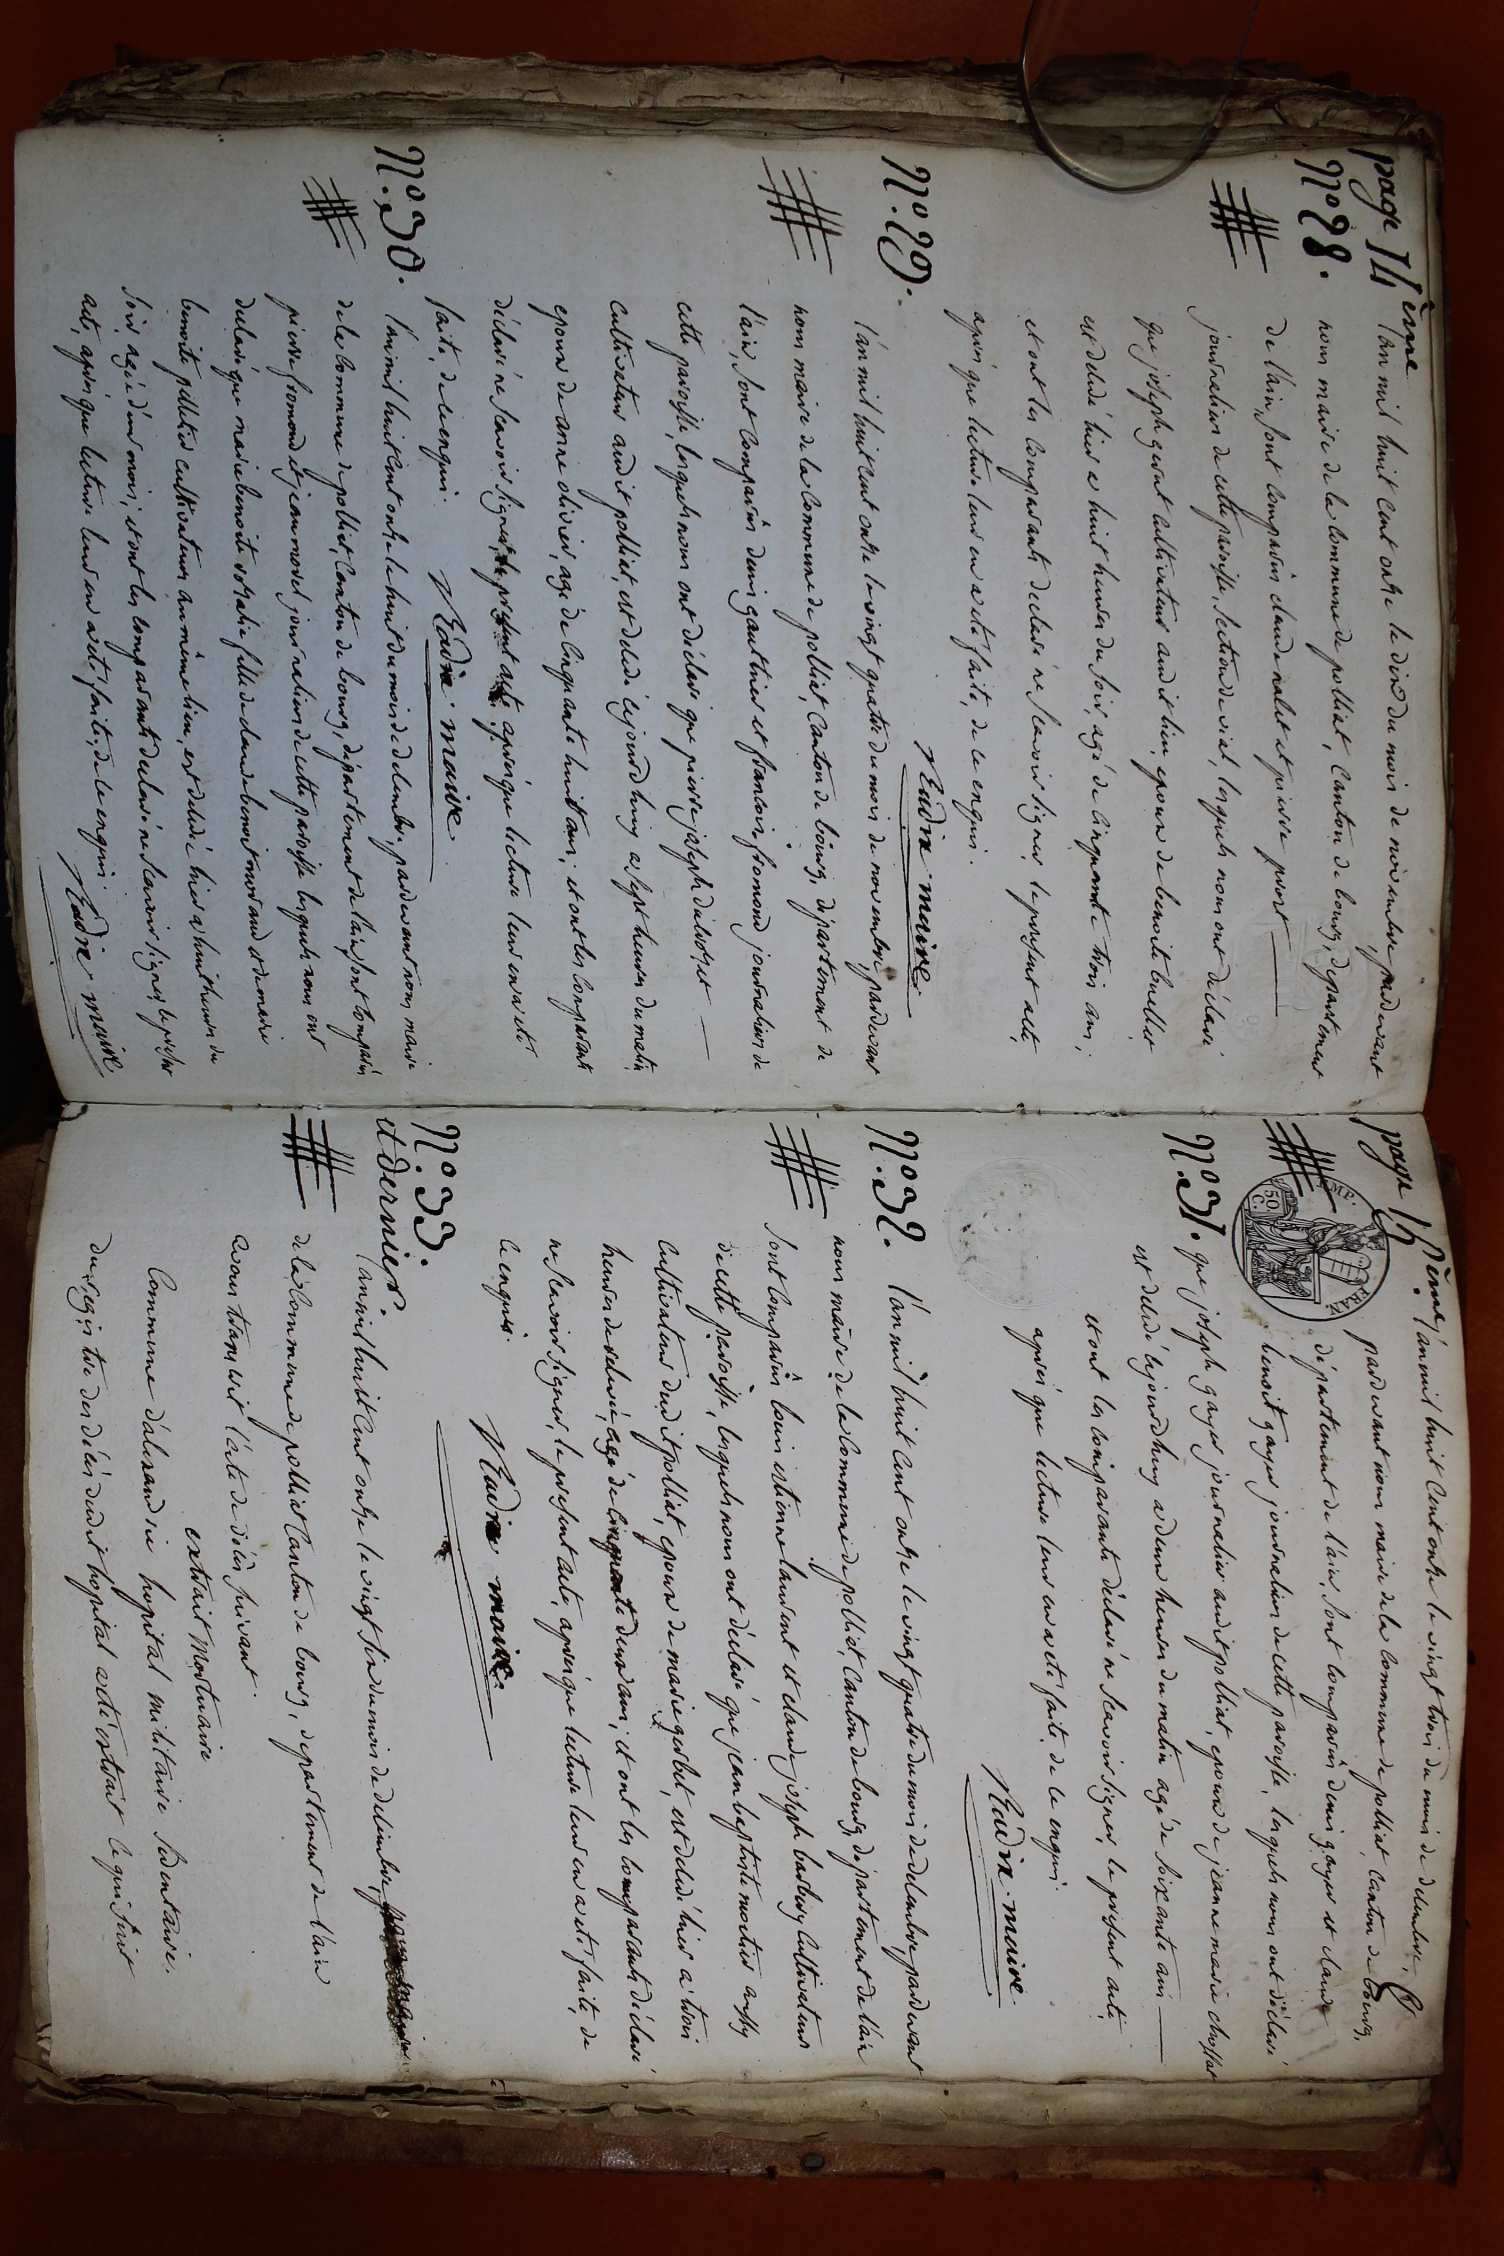 page 14ème
N° 28.
l'an mil huit cent onze le dix du mois de novembre, pardevant
nous maire de la commune de polliat, canton de bourg, departement
de l'ain, sont comparus claude nalet et pierre
journaliers de cette paroisse, section de viat, lesquels nous ont déclaré
que joseph gerat cultivateur audit lieu, epoux de benoite buellet
est dcdé hier a huit heures du soir, agé de cinquante trois ans;
et ont les comparants declaré ne scavoir signer le présent acte,
après que lecture leur en a eté faite, de ce enquis.
maire
N°. 29.
l'an mil huit cent onze le vingt quatre du mois de novembre, pardevant
nous maire de la commune de polliat, canton de bourg, département de
l'ain, sont comparus denis gauthier et francois fromond journaliers de
cette paroisse, lesquels nous ont déclaré que pierre joseph
cultivateur audit polliat, est dcdé cejourd'huy a sept heures du matin
epoux de anne olivier, agé de cinquante huit ans; et ont les comparants
déclaré ne scavoir signer, le présent acte, après que lecture leur en a eté
faite, de ce enquis.
maire
N°. 30.
l'an mil huit cent onze le huit du mois de dcembre, pardevant nous maire
de la commune de polliat, canton de bourg, département de l'ain, sont comparus
pierre fromond et jean morel journaliers de cette paroisse lesquels nous ont
déclaré que marie benoite rosalie fille de claude benoit morand et de marie
benoite cultivateurs au même lieu, est dcdée hier a huit heures du
soir agée d'un mois; et ont les comparants declaré ne scavoir signer le présent
acte, après que lecture leur en a eté faite, de ce enquis.
maire
page 15ème
l'an mil huit cent onze le vingt trois du mois de dcembre,
pardevant nous maire de la commune de polliat, canton de bourg,
département de l'ain, sont comparus denis gayer et claude
benoit gayer journaliers de cette paroisse, lesquels nous ont déclaré
N°. 31.
que joseph gayer journalier audit polliat, epoux de jeanne marie chossat
est dcdé cejourd'huy a deux heures du matin agé de soixante ans
et ont les comparants déclaré ne scavoir signer, le présent acte,
après que lecture leur en a eté faite, de ce enquis.
maire.
IMP.
FRAN.
50
C.
N°. 32.
l'an mil huit cent onze le vingt quatre du mois de dcembre, pardevant
nous maire de la commune de polliat, canton de bourg, département de l'ain
sont comparus louis estienne laurent et claude joseph barberg cultivateurs
de cette paroisse, lesquels nous ont déclaré que jean baptiste moctier aussy
cultivateur dudit polliat, epoux de marie gerbet, est dcdé hier a trois
heures de relevée, agé de cinquante deux ans; et ont les comparants déclaré
ne scavoir signer, le présent acte, après que lecture leur en a eté faite, de
ce enquis.
maire.
N°. 33.
et dernier.
l'an mil huit cent onze le vingt six du mois de dcembre,
de la commune de polliat canton de bourg, département de l'ain
avons transcrit l'acte de décès suivant.
extrait Mortuaire
Commune d'alexandrie hopital militaire Sedentaire.
du registre des décès dudit hopital a eté extrait ce qui suit